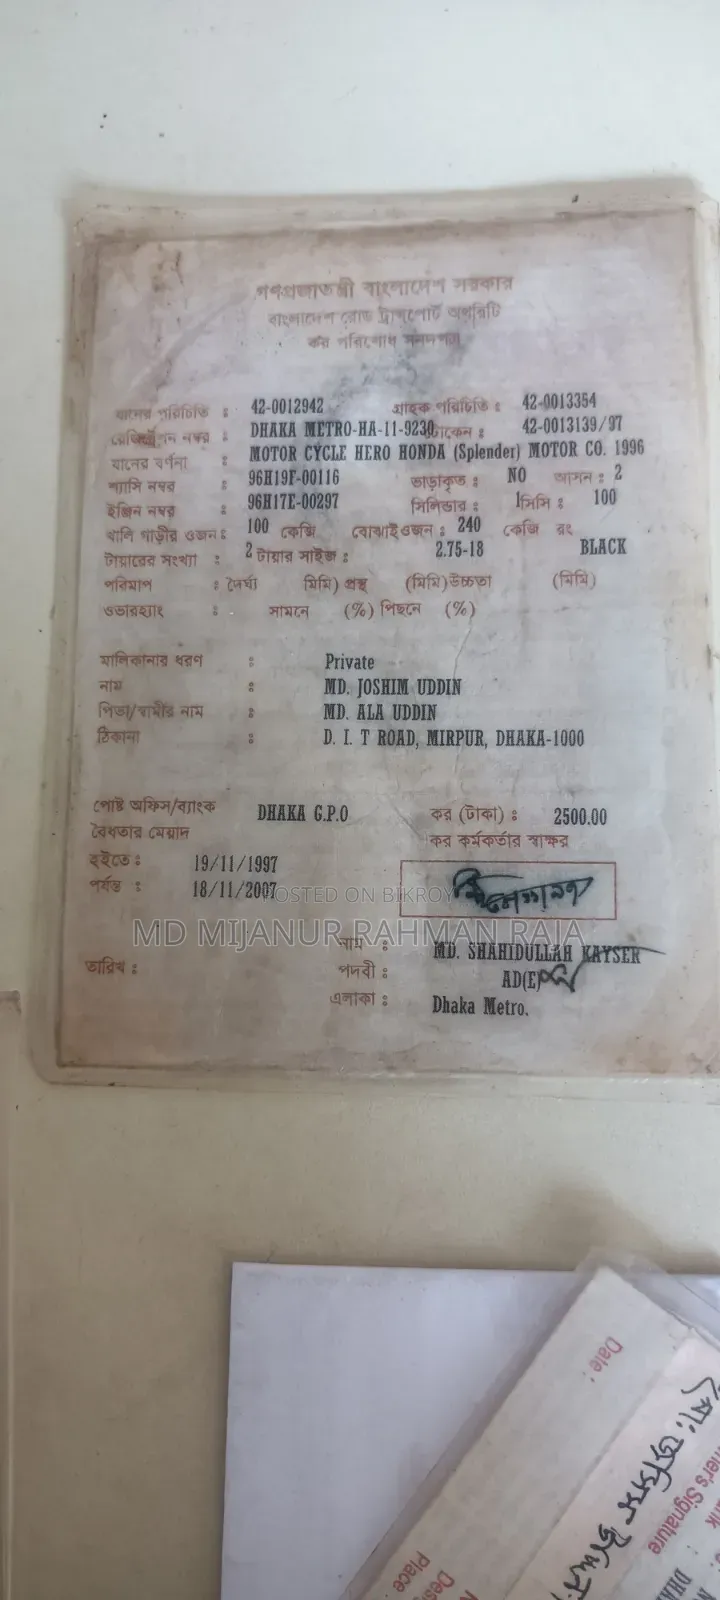 গণপ্রজাতন্ত্রী বাংলাদেশ সরকার
বাংলাদেশ রোড ট্রান্সপোর্ট অথরিটি
কর পরিশোধ সনদপত্র
যানের পরিচিতি : 42-0012942 গ্রাহক পরিচিতি : 42-0013354
রেজিস্ট্রেশন নম্বর : DHAKA METRO-HA-11-9230 টোকেন : 42-0013139/97
যানের বর্ণনা : MOTOR CYCLE HERO HONDA (Splender) MOTOR CO. 1996
শ্যাসি নম্বর : 96H19F-00116 ভাড়াকৃত : NO আসন : 2
ইঞ্জিন নম্বর : 96H17E-00297 সিলিন্ডার : 1 সিসি : 100
খালি গাড়ীর ওজন : 100 কেজি বোঝাই ওজন : 240 কেজি রং
টায়ারের সংখ্যা : 2 টায়ার সাইজ : 2.75-18 BLACK
পরিমাপ : দৈর্ঘ্য মিমি) প্রস্থ (মিমি) উচ্চতা (মিমি)
ওভারহ্যাং : সামনে (%) পিছনে (%)
মালিকানার ধরণ : Private
নাম : MD. JOSHIM UDDIN
পিতা/স্বামীর নাম : MD. ALA UDDIN
ঠিকানা : D. I. T ROAD, MIRPUR, DHAKA-1000
পোষ্ট অফিস/ব্যাংক DHAKA G.P.O কর (টাকা) : 2500.00
বৈধতার মেয়াদ কর কর্মকর্তার স্বাক্ষর
হইতে : 19/11/1997
পর্যন্ত : 18/11/2007
POSTED ON BIKROY
MD MIJANUR RAHMAN RAJA
নাম : MD. SHAHIDULLAH KAYSER
তারিখ : পদবী : AD(E)
এলাকা : Dhaka Metro.
Date :
মো: জসিম উদ্দিন
Signature
Place